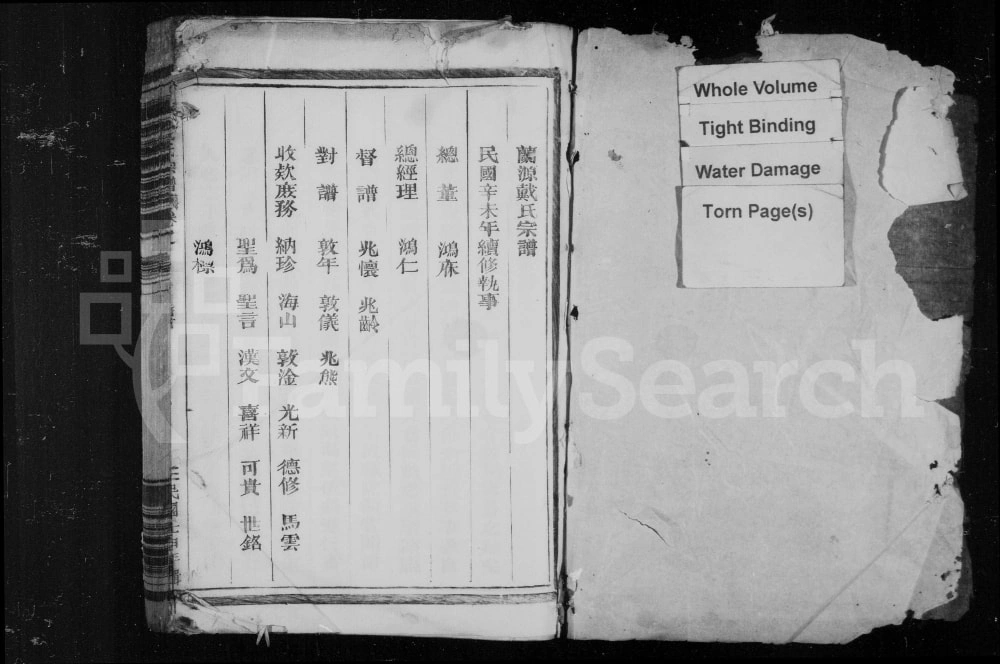 蘭源戴氏宗譜
民國辛未年續修執事
總董 鴻庥
總經理 鴻仁
督譜 兆懷 兆齡
對譜 敦年 敦儀 兆熊
收欵庶務 納珍 海山 敦淦 光新 德修 馬雲
聖為 聖言 漢文 喜祥 可貴 世銘
鴻樑
Whole Volume
Tight Binding
Water Damage
Torn Page(s)
FamilySearch